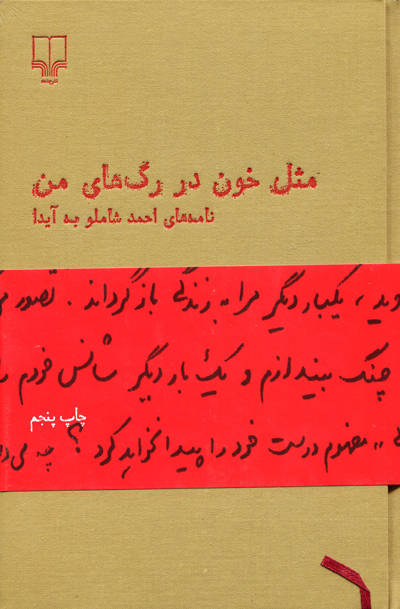 نشرچشمه
مثل خون در رگ‌های من
نامه‌های احمد شاملو به آیدا
، یکبار دیگر مرا به زندگی باز گرداند . تصور
چنگ بیندازم و یک بار دیگر شانس خودم را
چاپ پنجم
مفهوم درست خود را پیدا نخواهد کرد ؟ چه